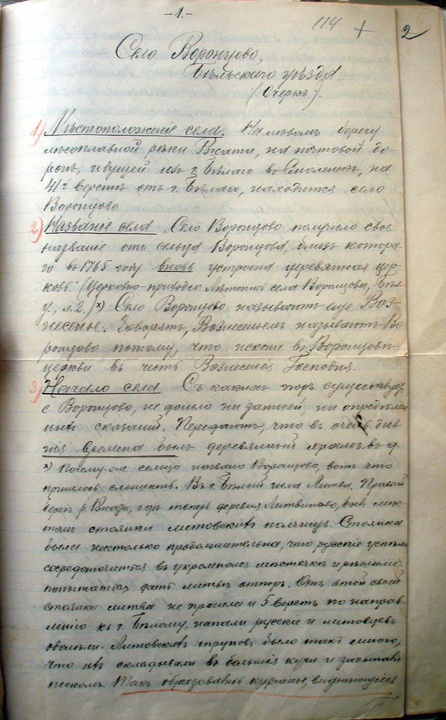 -1.-
114 + 2
Село Воронцово,
Бѣльскаго уѣзда.
(Очеркъ).
1) Мѣстоположеніе села. На лѣвомъ берегу
лѣсосплавной рѣки на почтовой до-
рогѣ, идущей изъ г. Бѣлаго въ Смоленскъ, на
41й верстѣ отъ г. Бѣлаго, находится село
Воронцово.
2) Названіе села. Село Воронцово получило свое
названіе отъ сельца Воронцова, близъ котора-
го въ 1765 году вновь устроена деревянная цер-
ковь (Церковно-приходск. Лѣтопись села Воронцова, Бѣл.
у., л. 2.) х) Село Воронцово называютъ еще Воз-
несенье. Говорятъ, Вознесеньемъ называютъ Во-
ронцово потому, что искони въ Воронцовѣ
церкви въ честь Вознесенія Господня.
3) Начало села. Съ какихъ поръ существуетъ
с. Воронцово, не дошло ни данныхъ, ни опредѣлен-
ныхъ сказаній. Передаютъ, что въ очень дав-
нія времена былъ деревянный храмъ въ
х) Почему-же сельцо названо Воронцово, вотъ что
пришлось слышать. Въ г. Бѣлый шла Литва. Правый
берегъ р. гдѣ теперь деревня Литвиново, былъ мѣс-
томъ стоянки литовскихъ полчищъ. Стоянка
была настолько продолжительна, что русскіе успѣли
сосредоточиться въ укромномъ мѣстечкѣ и рѣшили
попытаться дать литвѣ отпоръ. Отъ этой своей
стоянки литва не прошла и 5 верстъ по направ-
ленію къ г. Бѣлому, напали русскіе и литовцевъ
Литовскихъ труповъ было такъ много,
что ихъ складывали въ большія кучи и засыпали
пескомъ. Такъ образовались курганы, виднѣющіеся